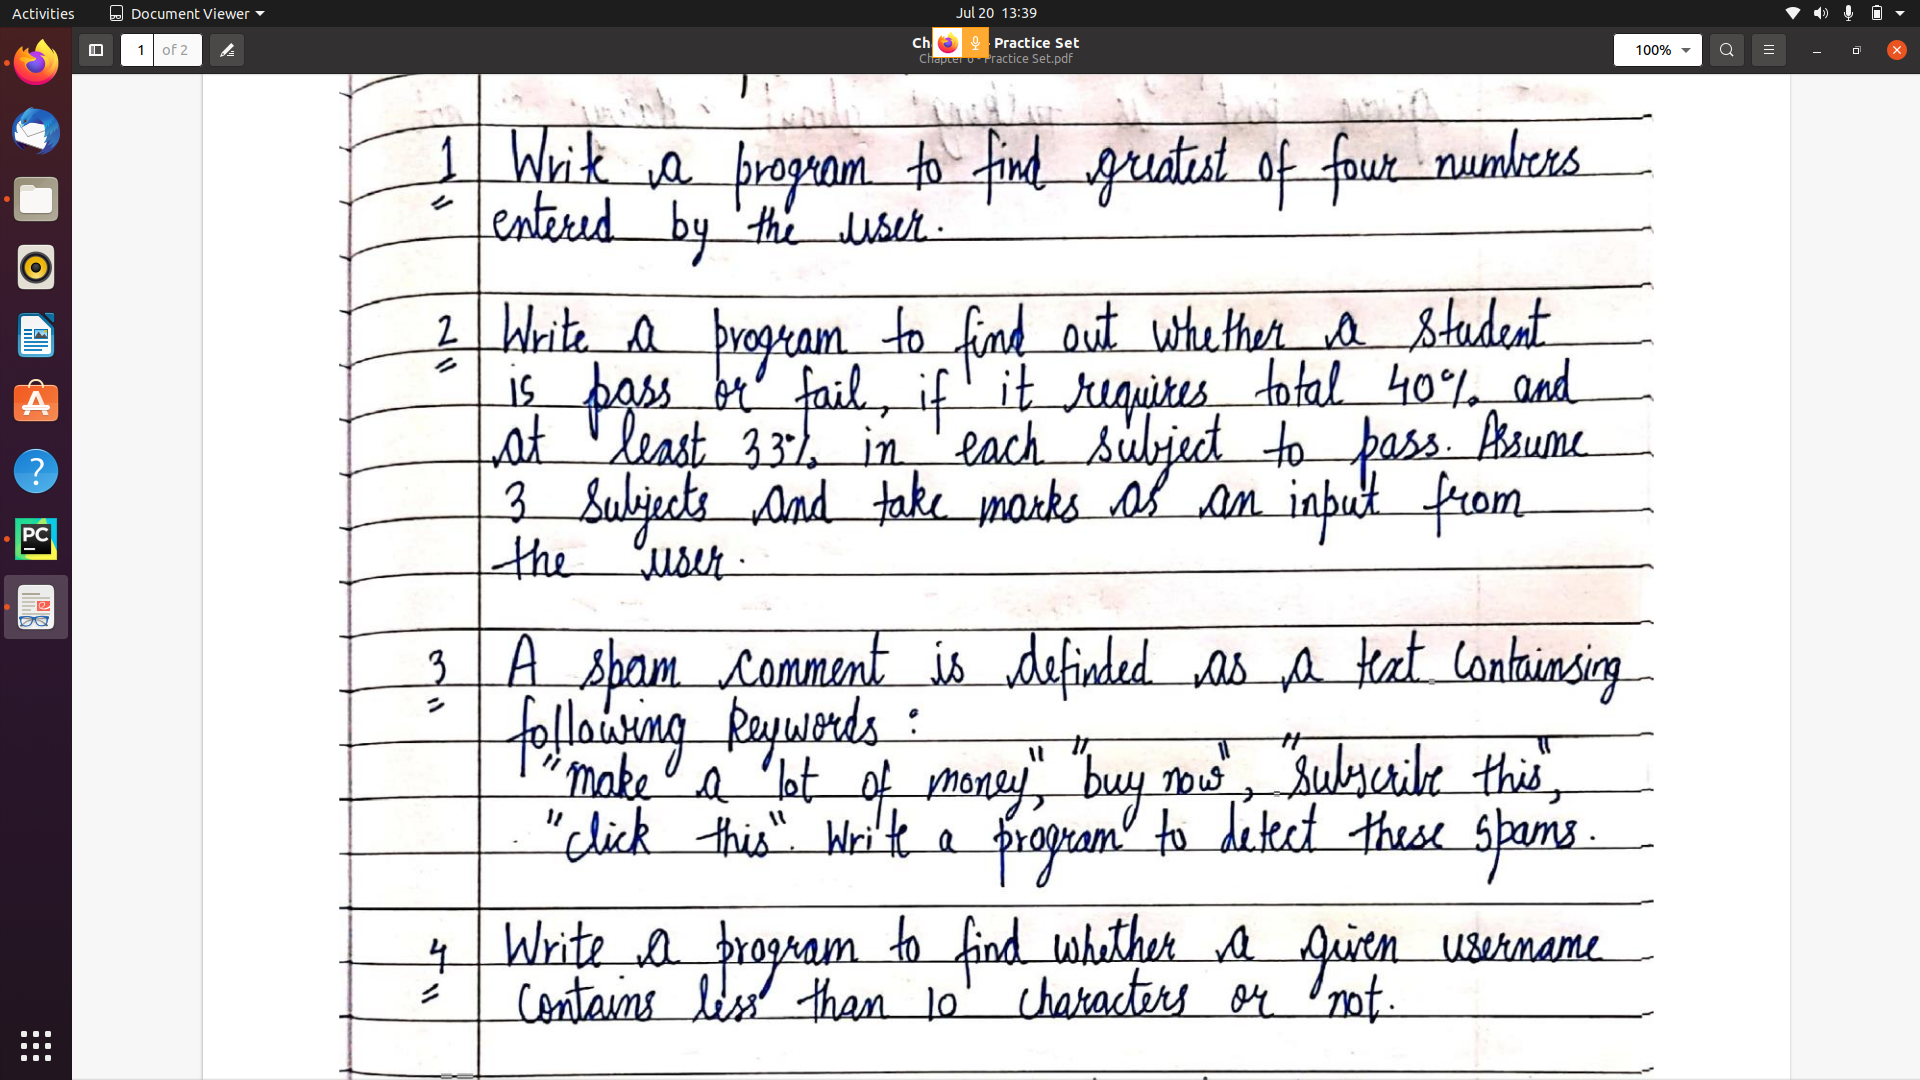 Activities Document Viewer Jul 20 13:39
1 of 2 Practice Set 100%
Practice Set.pdf
1 Write a program to find greatest of four numbers
entered by the user.
2 Write a program to find out whether a student
is pass or fail, if it requires total 40% and
at least 33% in each subject to pass. Assume
3 subjects and take marks as an input from
the user.
3 A spam comment is definded as a text containsing
following keywords :
"make a lot of money", "buy now", "subscribe this",
"click this". Write a program to detect these spams.
4 Write a program to find whether a given username
contains less than 10 characters or not.
PC